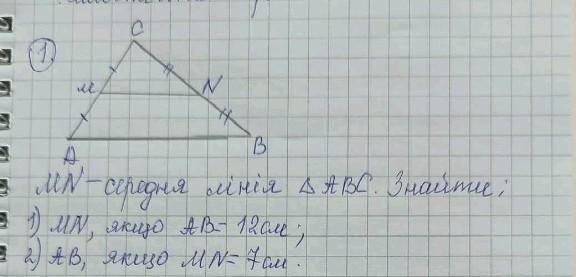 1.
C
M
N
A
B
MN – середня лінія △ABC. Знайти:
1) MN, якщо AB = 12 см;
2) AB, якщо MN = 7 см.